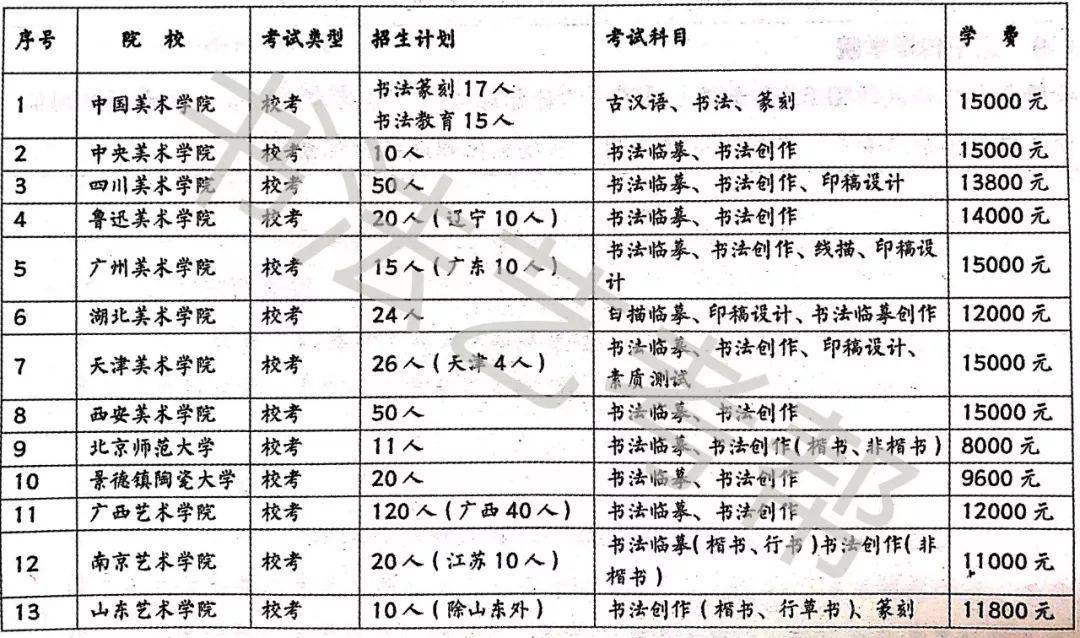 序号 院校 考试类型 招生计划 考试科目 学费
1 中国美术学院 校考 书法篆刻17人 古汉语、书法、篆刻 15000元
书法教育15人
2 中央美术学院 校考 10人 书法临摹、书法创作 15000元
3 四川美术学院 校考 50人 书法临摹、书法创作、印稿设计 13800元
4 鲁迅美术学院 校考 20人(辽宁10人) 书法临摹、书法创作 14000元
5 广州美术学院 校考 15人(广东10人) 书法临摹、书法创作、线描、印稿设 15000元
计
6 湖北美术学院 校考 24人 白描临摹、印稿设计、书法临摹创作 12000元
7 天津美术学院 校考 26人(天津4人) 书法临摹、书法创作、印稿设计、 15000元
素质测试
8 西安美术学院 校考 50人 书法临摹、书法创作 15000元
9 北京师范大学 校考 11人 书法临摹、书法创作(楷书、非楷书) 8000元
10 景德镇陶瓷大学 校考 20人 书法临摹、书法创作 9600元
11 广西艺术学院 校考 120人(广西40人) 书法临摹、书法创作 12000元
12 南京艺术学院 校考 20人(江苏10人) 书法临摹(楷书、行书)书法创作(非 11000元
楷书)
13 山东艺术学院 校考 10人(除山东外) 书法创作(楷书、行草书)、篆刻 11800元
书法艺考帮